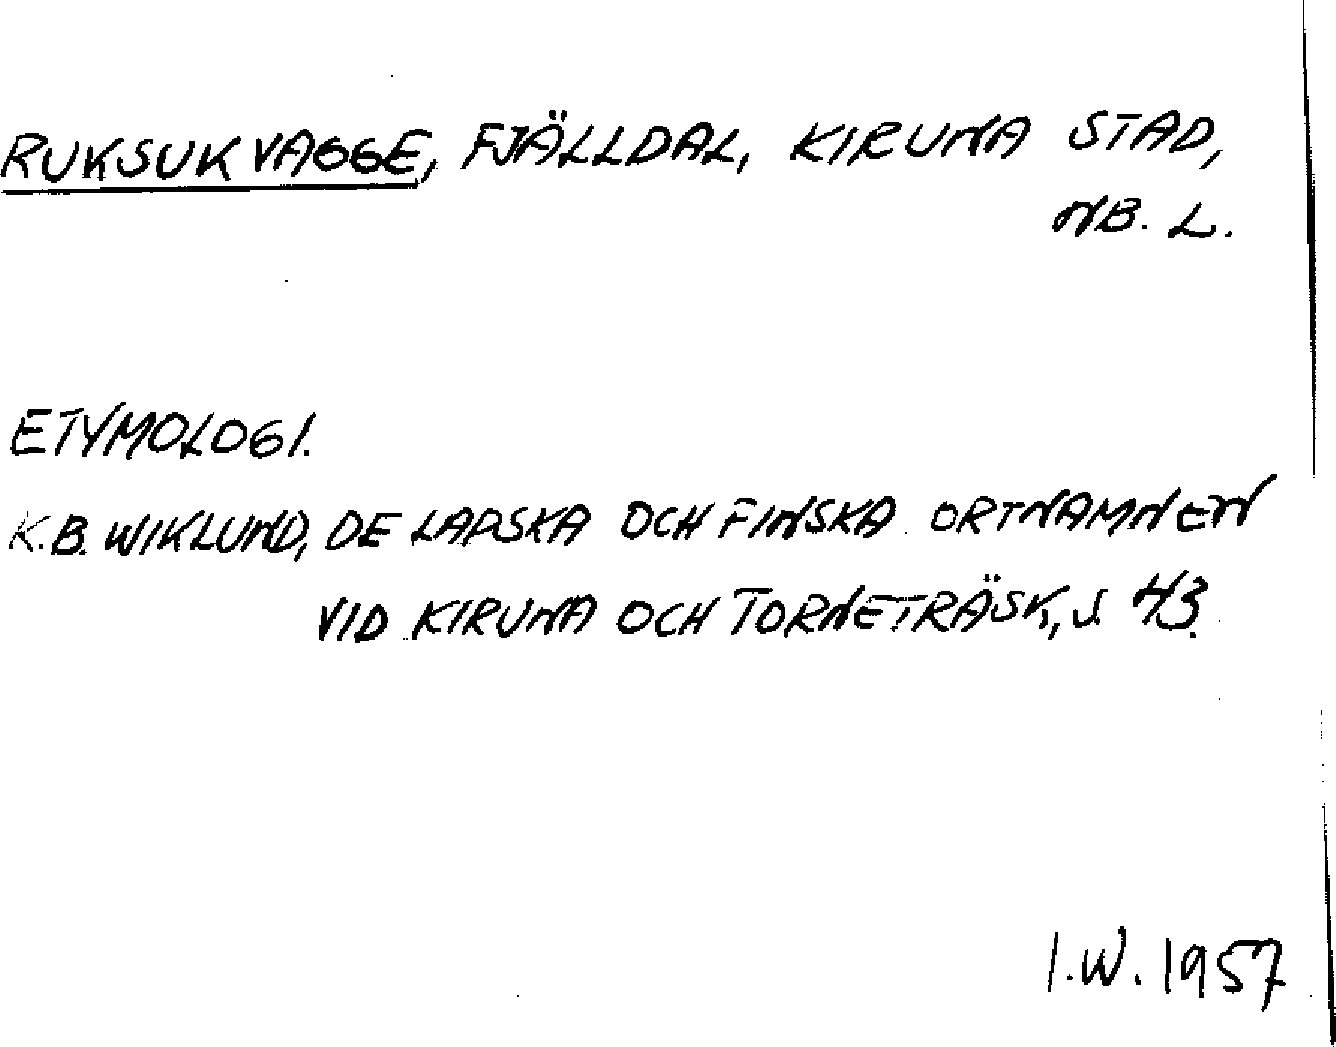 RUKSUKVAGGE, FJÄLLDAL, KIRUNA STAD,
NB. L.
ETYMOLOGI.
K.B. WIKLUND, DE LAPSKA OCH FINSKA ORTNAMNEN
VID KIRUNA OCH TORNETRÄSK, S. 43.
I.W. 1957